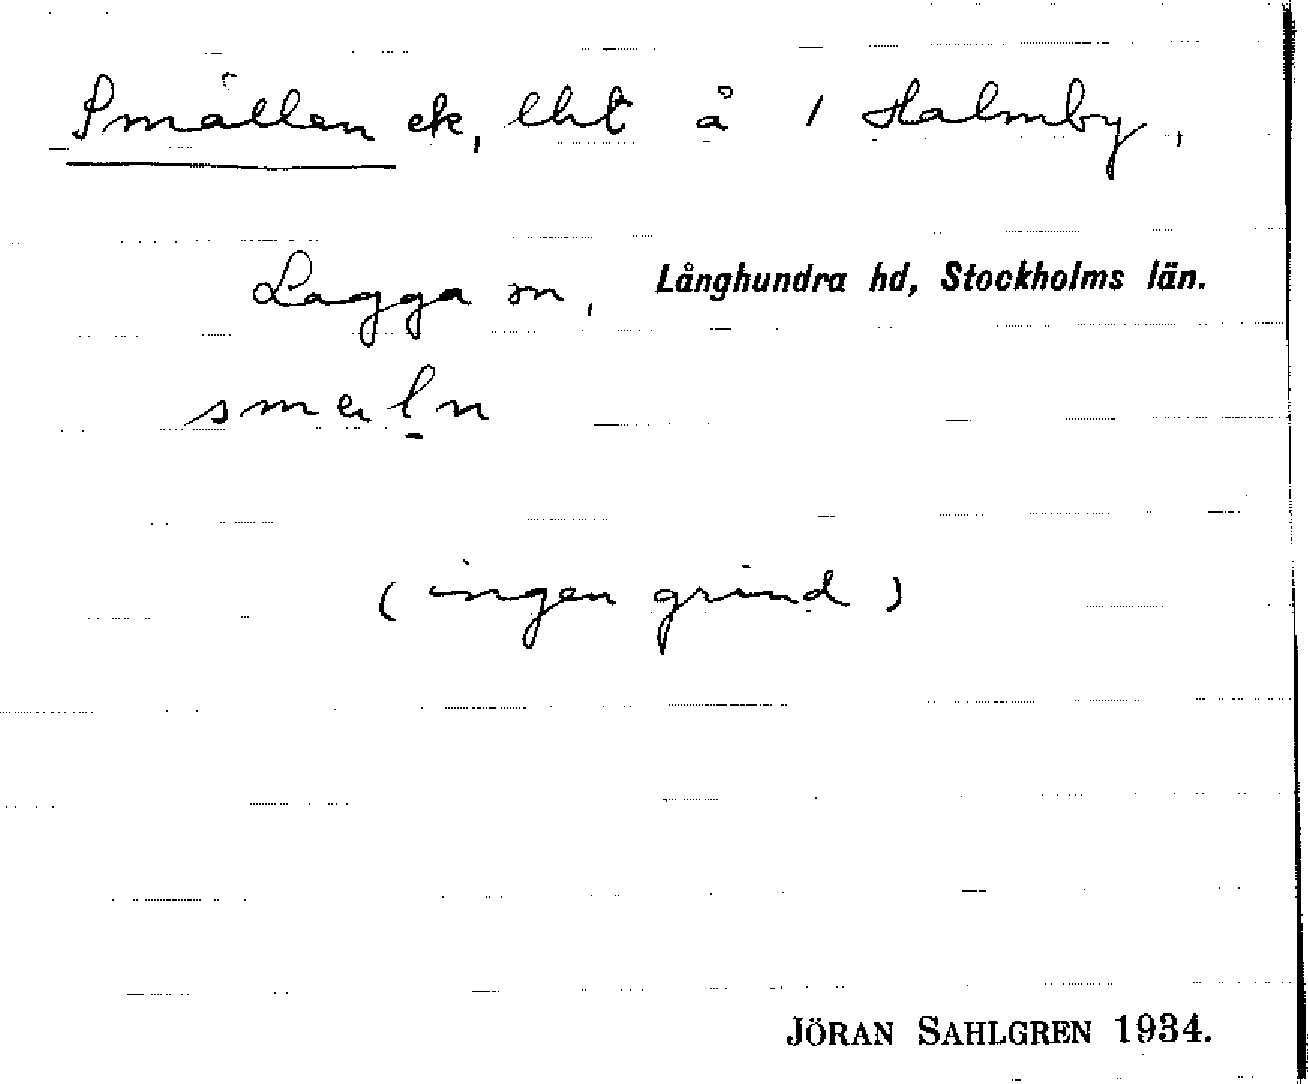 Smällen ek, lht å 1 Halmby,
Lagga sn, Långhundra hd, Stockholms län.
smaln
(ingen grind)
JÖRAN SAHLGREN 1934.